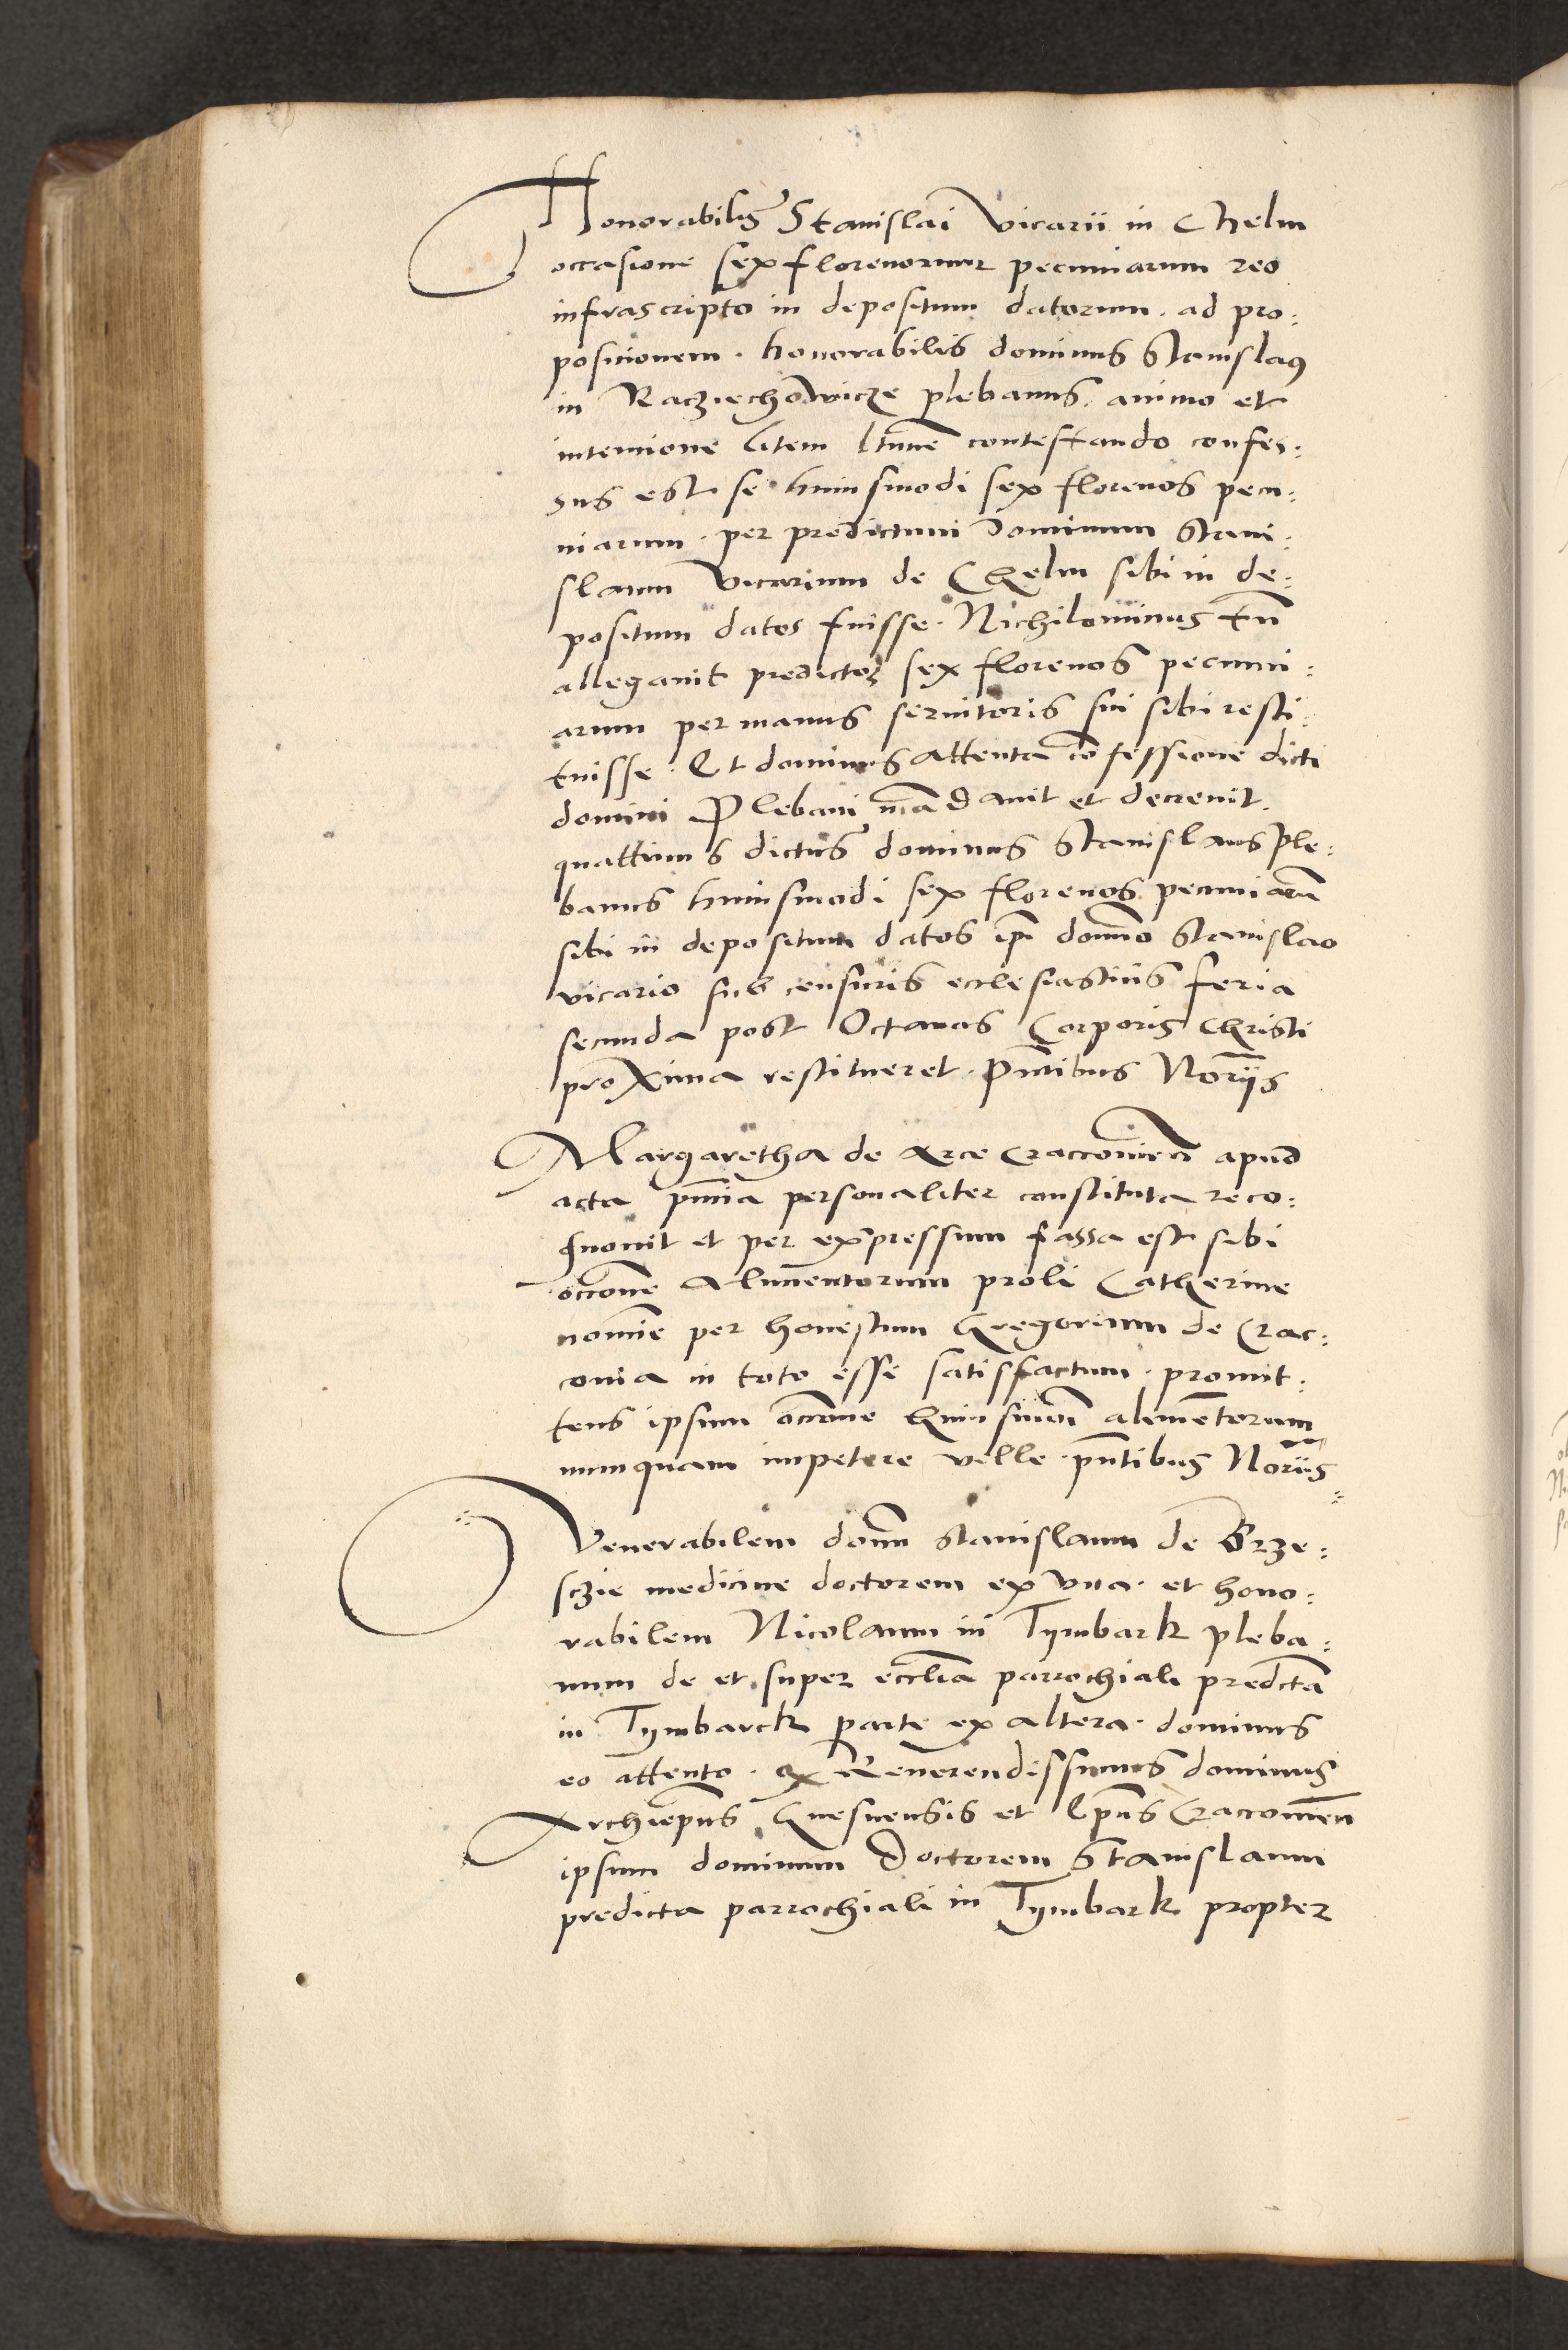 Honorabilis Stanislai Vicarii in Chelm
occasione sex florenorum pecuniarum reo
infrascripto in depositum datorum. ad pro:
posicionem. honorabilis dominus Stanislaus
in Racziechowicze plebanus. animo et
intencione litem ltime contestando confes:
sus est se huiusmodi sex florenos pecu:
niarum. per predictum Dominum Stani:
slaum Vicarium de Chelm sibi in de:
positum datos fuisse. Nichilominus tn
allegauit predictos sex florenos pecuni:
arum per manus seruitoris sui sibi resti:
tuisse. Et dominus attenta confessione dicti
domini Plebani mandauit et decreuit.
quattinus dictus dominus Stanislaus ple:
banus huiusmodi sex florenos pecuniaru
sibi in depositum datos ipi domino Stanislao
vicario sub censuris ecclesiasticis feria
secunda post Octauas Corporis Christi
proxima restitueret. Pntibus Noriis
Margaretha de Arce Cracouien apud
acta pntia personaliter constituta reco:
gnouit et per expressum fassa est sibi
occone Alimentorum proli Catherine
nomine per honestum Gregorium de Crac:
couia in toto esse satisfactum. promit:
tens ipsum occone huiusmoi alimentorum
nunquam impetere velle. pntibus Noriis
Venerabilem donu Stanislaum de Brze:
sczie medicine doctorem ex vna. et hono:
rabilem Nicolaum in Tymbark pleba:
num de et super ecclia parrochiali predcta
in Tymbarck parte ex altera. dominus
eo attento. Reuerendissimus dominus
Archiepus Gnesnensis et Epus Cracouien
ipsum dominum Doctorem Stanislaum
predicta parrochiali in Tymbark propter